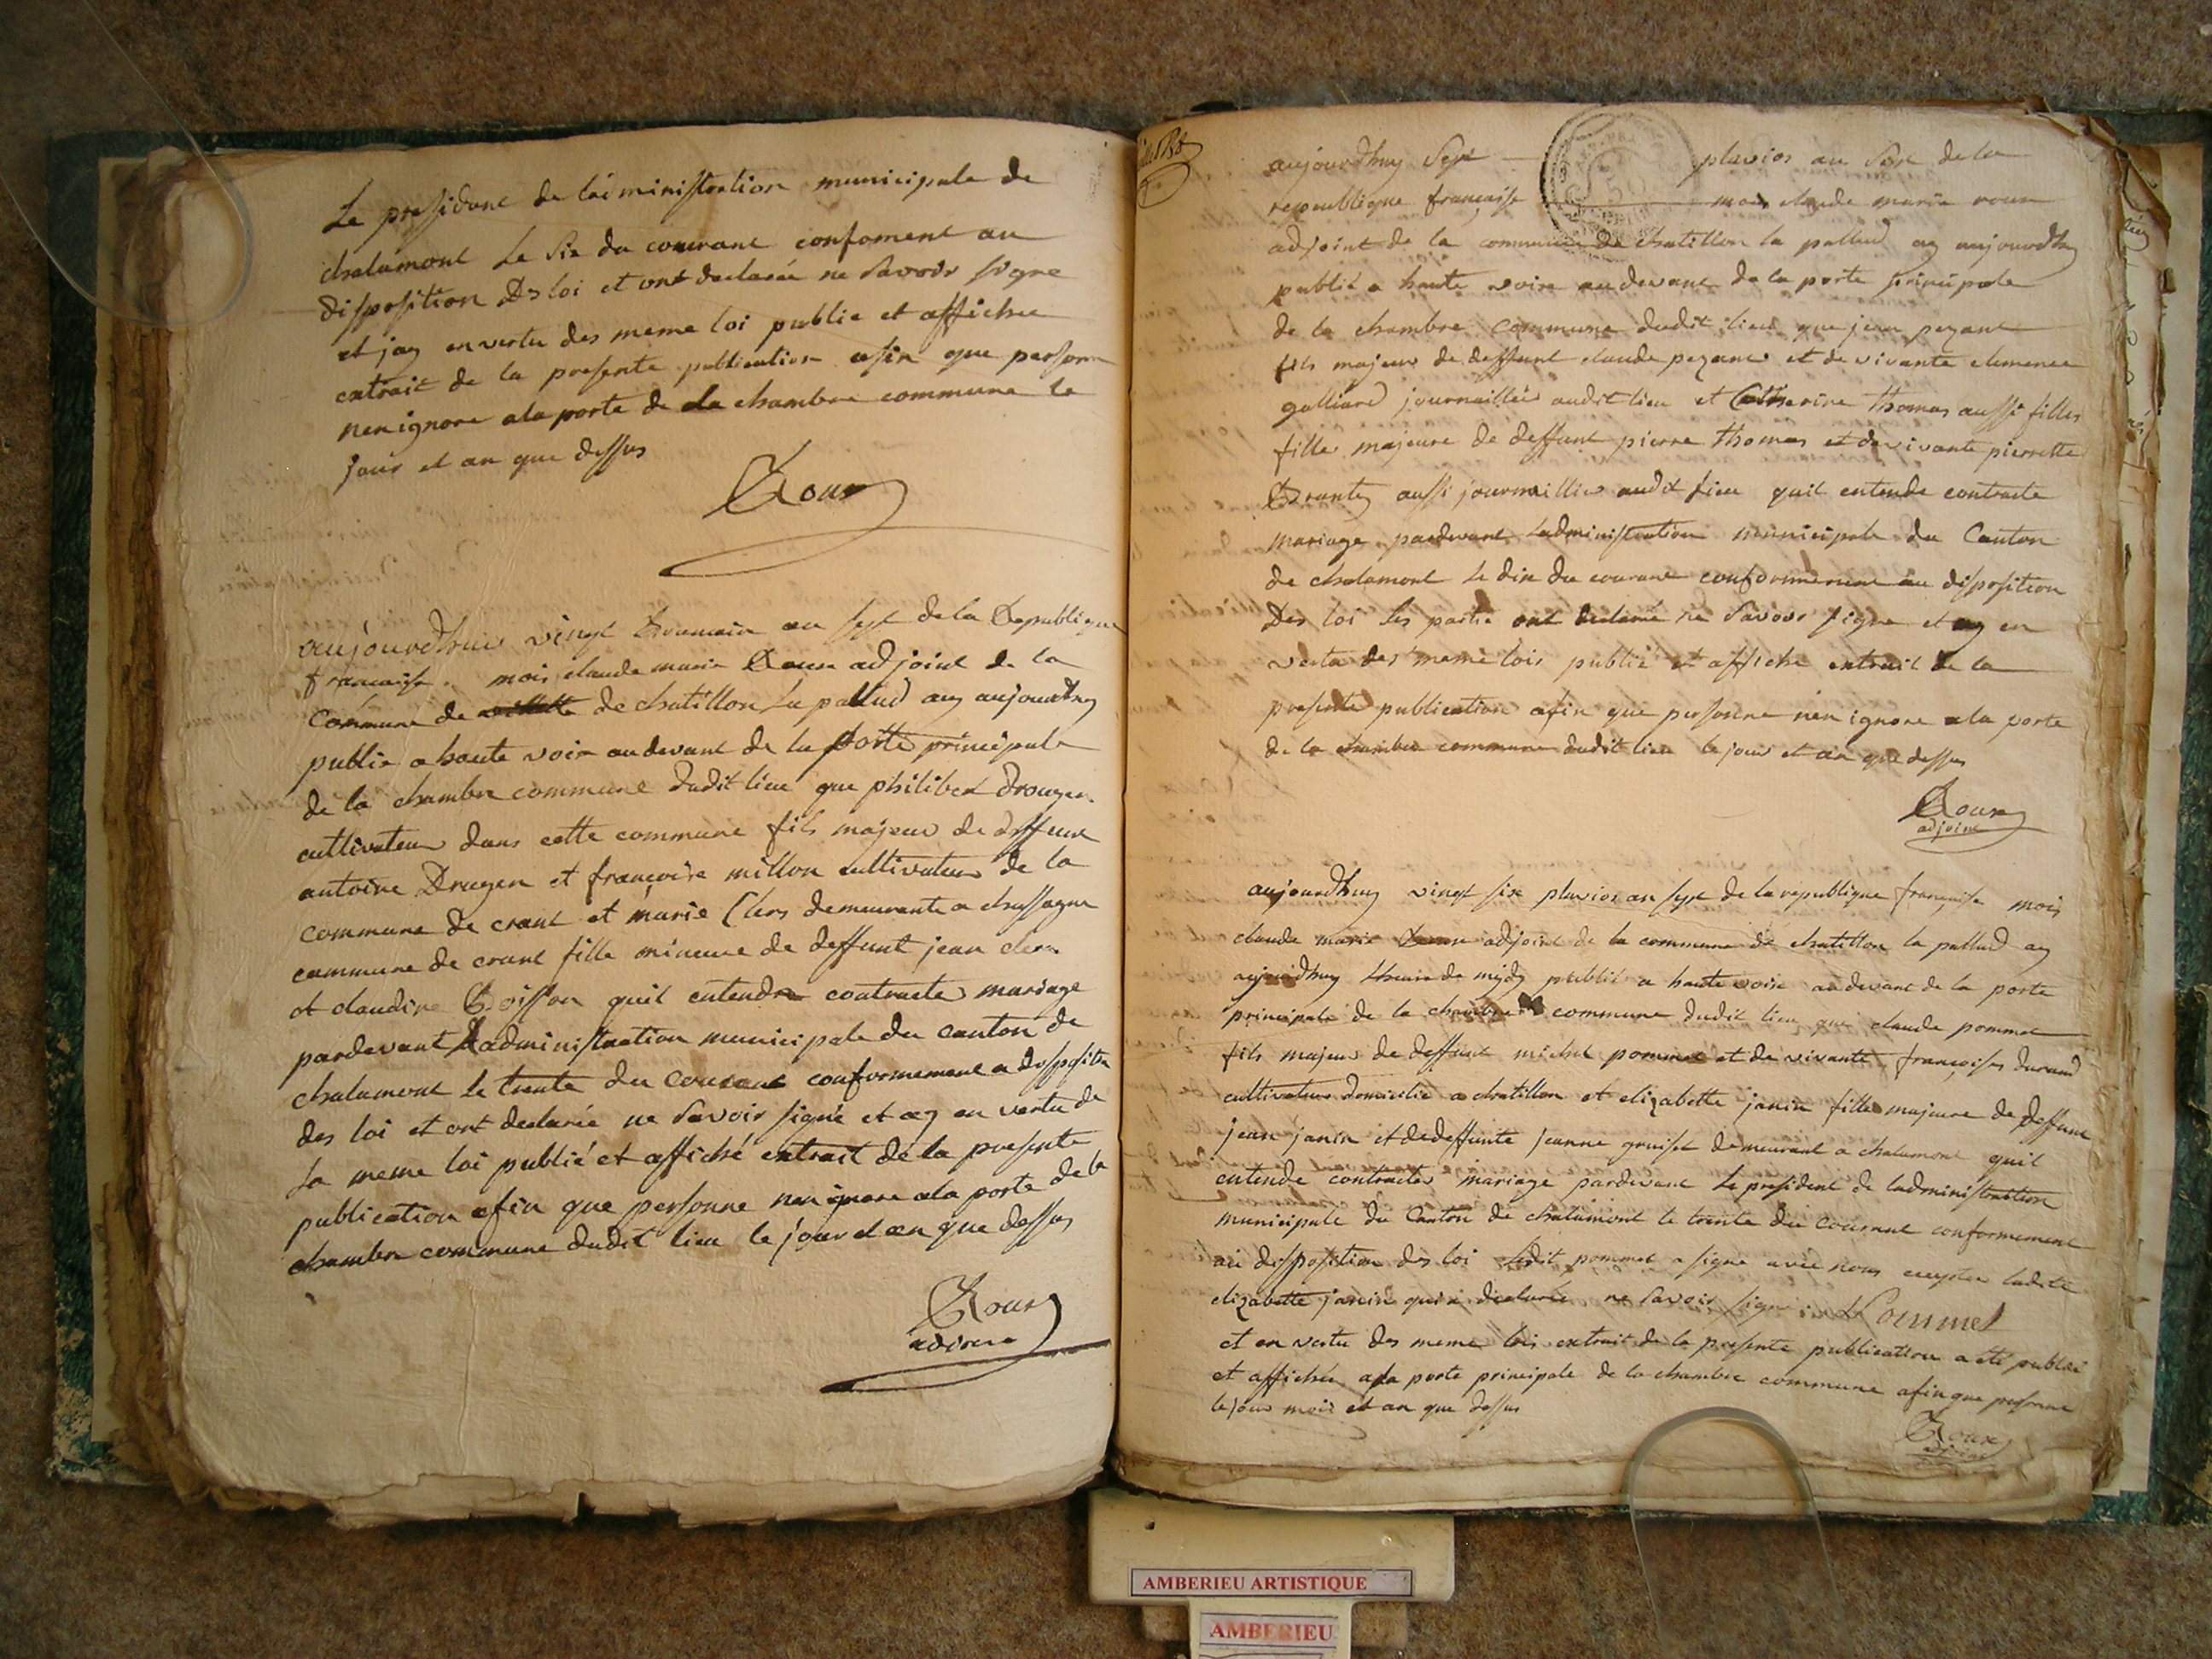 Le president de laiministration municipale de
chalamont Le six du courant conforment au
disposition Ds loi et ont declarée ne savoir signe
et jay en vertu des meme loi publie et affichee
extrait de la presente publication afin que personne
nen ignore a la porte de la chambre commune le
jour et an que dessus
Roux
aujourdhui vingt brumair an sept de la Republique
francaise mois claude marie Roux adjoint de la
Commune de villette de chatillon La pallud ay aujourdhuy
publie a haute voix au devant de la porte principale
de la chambre commune dudit lieu que philibert
cultivateur dans cette commune fils majeur de deffunt
antoine Drugen et françoise millon cultivateur de la
commune de crant et marie Clers demeurante a chassagne
commune de crant fille mineure de deffunt jean clerc
et claudine Boisson quil entendre contracter mariage
pardevant Ladministraction municipale du canton de
chalamont le trente du courant conformement a disposition
des loi et ont declarée ne savoir signé et ay en vertu de
la meme loi publié et affiché extrait de la presente
publication afin que personne nen ignore a la porte de la
chambre commune dudit lieu le jour et an que dessus
Roux
adjoint
aujourdhuy sept pluvios an sept de la
republique française mois claude marie roux
adjoint de la commune de chatillon la pallud ay aujourdhuy
publié a haute voix au devant de la porte principale
de la chambre commune dudit lieu que jean pezant
fils majeur de deffunt claude pezant et de vivante clemence
galliard journaillier audit lieu et Catherine Thomas aussi filles
fille majeure de deffunt pierre Thomas et de vivante pierrette
aussi journaillier audit lieu quil entende contracte
mariage pardevant Ladministration municipale du Canton
de chalamont le dix du courant conformement au disposition
Des loi Les partie ont declaré ne savoir signe et ay en
vertu des meme lois publié et affiche extrait de la
presente publication afin que personne nen ignore a la porte
de la chambre commune dudit lieu le jour et an que dessus
Roux
adjoint
aujourdhuy vingt six pluvios an sept de la republique française mois
claude marie Roux adjoint de la commune de chatillon la pallud ay
aujourdhuy Lheure de midy publié a haute voix au devant de la porte
principale de la chambre commune dudit lieu que claude pommet
fils majeur de deffunt michel pommet et de vivante françoises durand
cultivateur domicilié a chatillon et elizabette janin fille majeure de deffunt
jean janin et de deffunte jeanne demeurant a chalamont quil
entende contracter mariage pardevant Le president de ladministration
municipale du Canton de chalamont le trente du courant conformement
au disposition des loi Ledit pommet a signe avec nous excepter ladite
elizabette janin qui a declarée ne savoir signé Pommet
et en vertu des meme lois extrait de la presente publication a été publié
et affichée a la porte principale de la chambre commune afin que personne
le jour mois et an que dessus
Roux
adjoint
AMBERIEU ARTISTIQUE
AMBERIEU